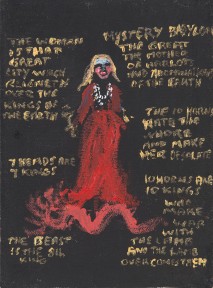 THE WOMAN
IS THAT
GREAT
CITY WHICH
REIGNETH
OVER THE
KINGS OF
THE EARTH
MYSTERY BABYLON
THE GREAT
THE MOTHER
OF HARLOTS
AND ABOMINATION
OF THE EARTH
THE 10 HORNS
HATE THE
WHORE
AND MAKE
HER DESOLATE
7 HEADS ARE
7 KINGS
10 HORNS ARE
10 KINGS
WHO
MAKE
WAR
WITH
THE LAMB
AND THE LAMB
OVERCOMES THEM
THE BEAST
IS THE 8TH
KING